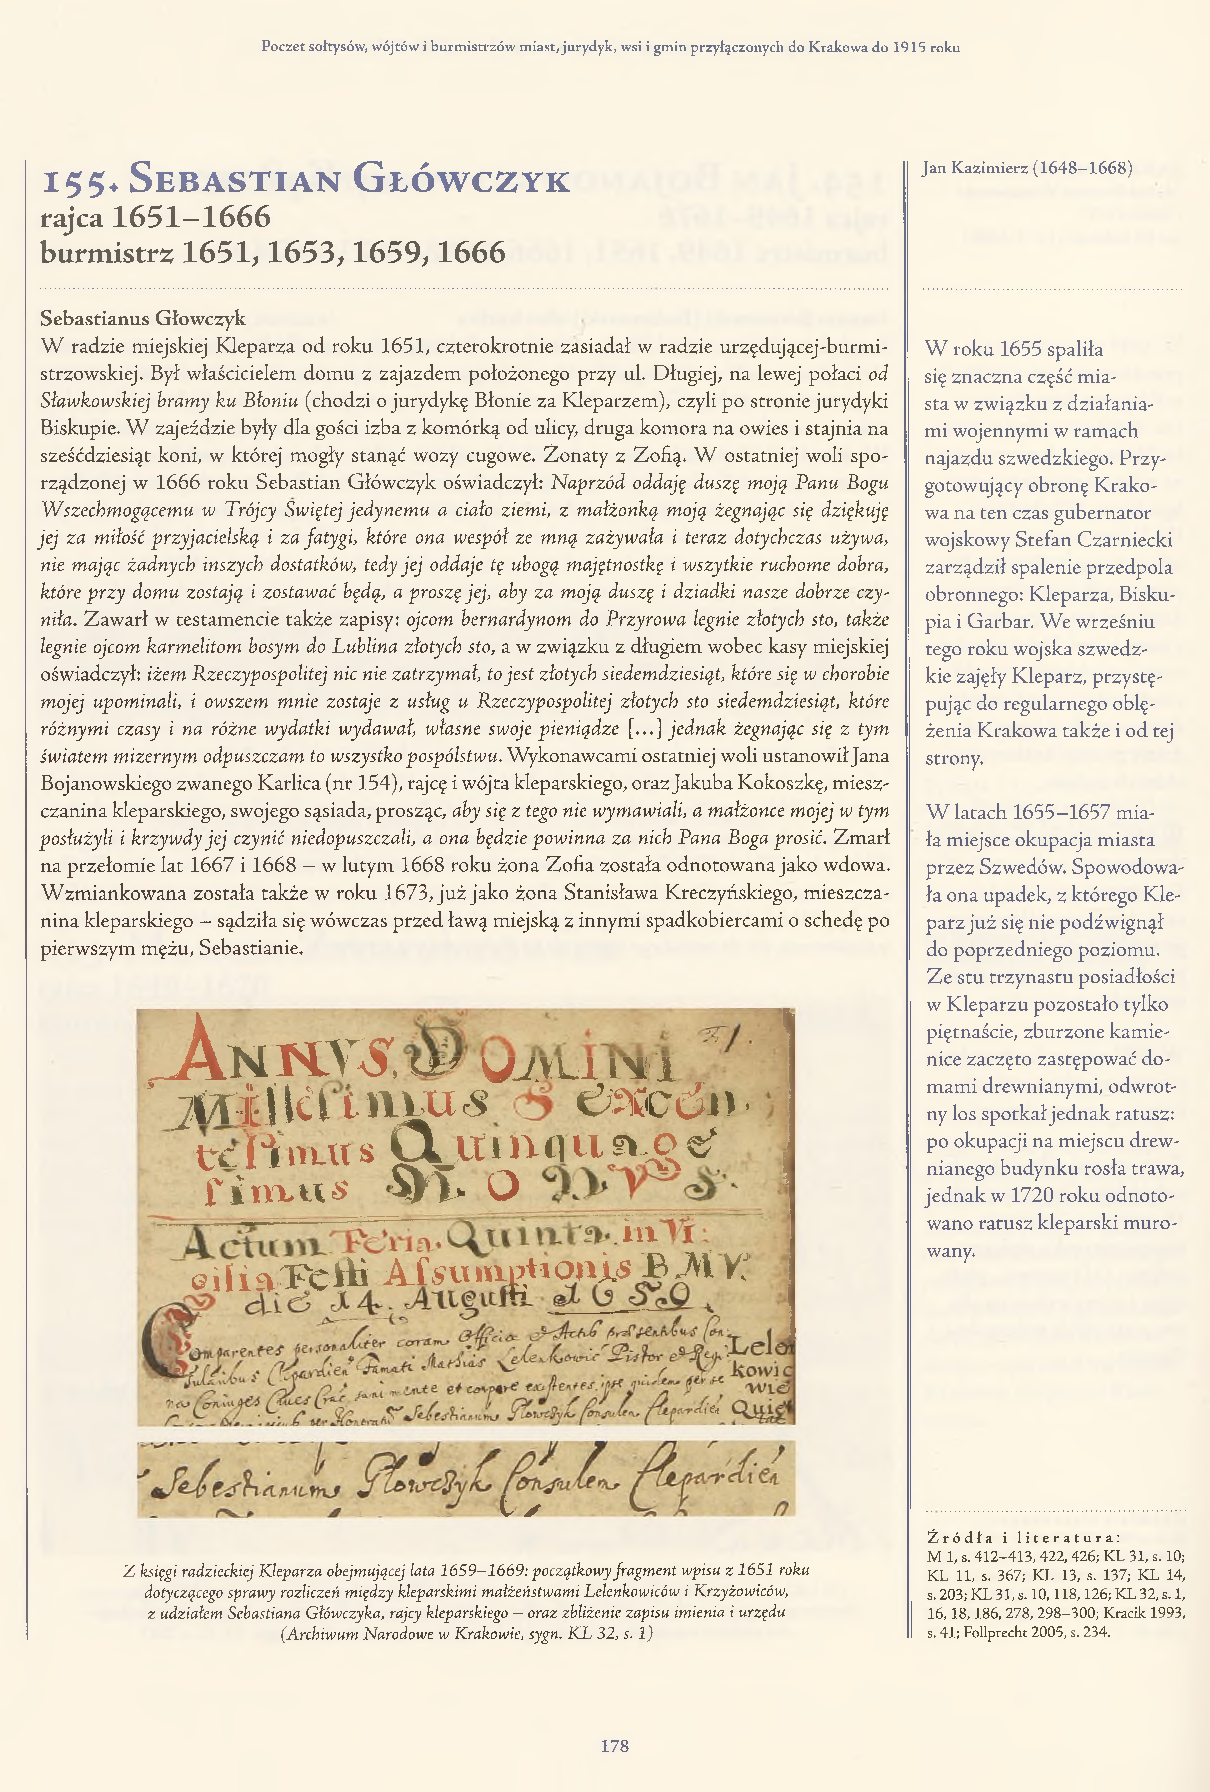 Poczet sołtysów, wójtów i burmistrzów miast, jurydyk, wsi i gmin przyłączonych do Krakowa do 1915 roku
155. Sebastian Główczyk
rajca 1651–1666
burmistrz 1651, 1653, 1659, 1666
Sebastianus Głowczyk
W radzie miejskiej Kleparza od roku 1651, czterokrotnie zasiadał w radzie urzędującej-burmi-
strzowskiej. Był właścicielem domu z zajazdem położonego przy ul. Długiej, na lewej połaci od
Sławkowskiej bramy ku Błoniu (chodzi o jurydykę Błonie za Kleparzem), czyli po stronie jurydyki
Biskupie. W zajeździe były dla gości izba z komórką od ulicy, druga komora na owies i stajnia na
sześćdziesiąt koni, w której mogły stanąć wozy cugowe. Żonaty z Zofią. W ostatniej woli spo-
rządzonej w 1666 roku Sebastian Główczyk oświadczył: Naprzód oddaję duszę moją Panu Bogu
Wszechmogącemu w Trójcy Świętej jedynemu a ciało ziemi, z małżonką moją żegnając się dziękuję
jej za miłość przyjacielską i za fatygi, które ona wespół ze mną zażywała i teraz dotychczas używa,
nie mając żadnych inszych dostatków, tedy jej oddaje tę ubogą majętnostkę i wszytkie ruchome dobra,
które przy domu zostają i zostawać będą, a proszę jej, aby za moją duszę i dziadki nasze dobrze czy-
niła. Zawarł w testamencie także zapisy: ojcom bernardynom do Przyrowa legnie złotych sto, także
legnie ojcom karmelitom bosym do Lublina złotych sto, a w związku z długiem wobec kasy miejskiej
oświadczył: iżem Rzeczypospolitej nic nie zatrzymał, to jest złotych siedemdziesiąt, które się w chorobie
mojej upominali, i owszem mnie zostaje z usług u Rzeczypospolitej złotych sto siedemdziesiąt, które
różnymi czasy i na różne wydatki wydawał, własne swoje pieniądze [...] jednak żegnając się z tym
światem mizernym odpuszczam to wszystko pospólstwu. Wykonawcami ostatniej woli ustanowił Jana
Bojanowskiego zwanego Karlica (nr 154), rajcę i wójta kleparskiego, oraz Jakuba Kokoszkę, miesz-
czanina kleparskiego, swojego sąsiada, prosząc, aby się z tego nie wymawiali, a małżonce mojej w tym
posłużyli i krzywdy jej czynić niedopuszczali, a ona będzie powinna za nich Pana Boga prosić. Zmarł
na przełomie lat 1667 i 1668 – w lutym 1668 roku żona Zofia została odnotowana jako wdowa.
Wzmiankowana została także w roku 1673, już jako żona Stanisława Kreczyńskiego, mieszcza-
nina kleparskiego – sądziła się wówczas przed ławą miejską z innymi spadkobiercami o schedę po
pierwszym mężu, Sebastianie.
Annus Domini
Millesimus Sexcen
tesimus Quinquage
simus
Actum Feria Quinta in Vi
gilia Festi Assumptionis B M V.
die 14 Augusti
Comparentes personaliter coram Officio
Sebestianum Głowczyk Consulem Clepardien
Z księgi radzieckiej Kleparza obejmującej lata 1659–1669: początkowy fragment wpisu z 1651 roku
dotyczącego sprawy rozliczeń między kleparskimi małżeństwami Lelenkowiców i Krzyżowiców,
z udziałem Sebastiana Główczyka, rajcy kleparskiego – oraz zbliżenie zapisu imienia i urzędu
(Archiwum Narodowe w Krakowie, sygn. KL 32, s. 1)
Jan Kazimierz (1648–1668)
W roku 1655 spaliła
się znaczna część mia-
sta w związku z działania-
mi wojennymi w ramach
najazdu szwedzkiego. Przy-
gotowujący obronę Krako-
wa na ten czas gubernator
wojskowy Stefan Czarniecki
zarządził spalenie przedpola
obronnego: Kleparza, Bisku-
pia i Garbar. We wrześniu
tego roku wojska szwedz-
kie zajęły Kleparz, przystę-
pując do regularnego oblę-
żenia Krakowa także i od tej
strony.
W latach 1655–1657 mia-
ła miejsce okupacja miasta
przez Szwedów. Spowodowa-
ła ona upadek, z którego Kle-
parz już się nie podźwignął
do poprzedniego poziomu.
Ze stu trzynastu posiadłości
w Kleparzu pozostało tylko
piętnaście, zburzone kamie-
nice zaczęto zastępować do-
mami drewnianymi, odwrot-
ny los spotkał jednak ratusz:
po okupacji na miejscu drew-
nianego budynku rosła trawa,
jednak w 1720 roku odnoto-
wano ratusz kleparski muro-
wany.
Źródła i literatura:
M 1, s. 412–413, 422, 426; KL 31, s. 10;
KL 11, s. 367; KL 13, s. 137; KL 14,
s. 203; KL 31, s. 10, 118, 126; KL 32, s. 1,
16, 18, 186, 278, 298–300; Kracik 1993,
s. 41; Follprecht 2005, s. 234.
178